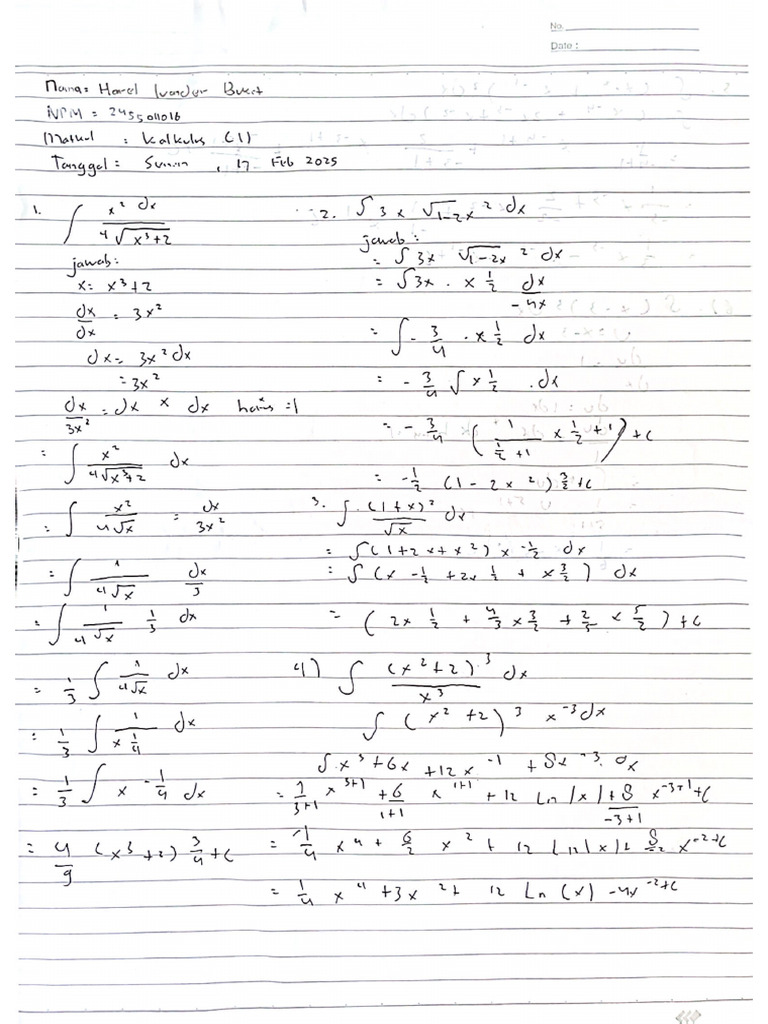 No.
Date :
Nama: Harel Ivander Bukit
NPM = 2455011016
Matkul : Kalkulus (1)
Tanggal : Senin , 17 Feb 2025
1. ∫ x² dx / ⁴√x³+2
jawab:
x = x³+2
dx/dx = 3x²
dx = 3x² dx
= 3x²
dx/3x² = dx x dx harus = 1
= ∫ x²/⁴√x³+2 dx
= ∫ x²/⁴√x = dx/3x²
= ∫ 1/⁴√x dx/3
= ∫ 1/⁴√x 1/3 dx
= 1/3 ∫ 1/⁴√x dx
= 1/3 ∫ 1/x 1/4 dx
= 1/3 ∫ x -1/4 dx
= 4/9 (x³+2) 3/4 + c
2. ∫ 3x √1-2x ² dx
jawab :
= ∫ 3x √1-2x ² dx
= ∫ 3x . x 1/2 dx/-4x
= ∫ - 3/4 . x 1/2 dx
= - 3/4 ∫ x 1/2 . dx
= - 3/4 ( 1/(1/2 +1) x 1/2 +1 ) + c
= -1/2 (1 - 2x ²) 3/2 + c
3. ∫ (1+x)²/√x dx
= ∫ (1+2x+x²) x -1/2 dx
= ∫ (x -1/2 + 2x 1/2 + x 3/2 ) dx
= ( 2x 1/2 + 4/3 x 3/2 + 2/5 x 5/2 ) + c
4) ∫ (x²+2)³/x³ dx
∫ (x² +2) ³ x⁻³ dx
∫ x³ + 6x + 12x⁻¹ + 8x⁻³ . dx
= 1/3+1 x³⁺¹ + 6/1+1 x¹⁺¹ + 12 Ln |x| + 8/-3+1 x⁻³⁺¹ + c
= 1/4 x⁴ + 6/2 x² + 12 Ln |x| + 8/-2 x⁻² + c
= 1/4 x⁴ + 3x² + 12 Ln (x) - 4x⁻² + c